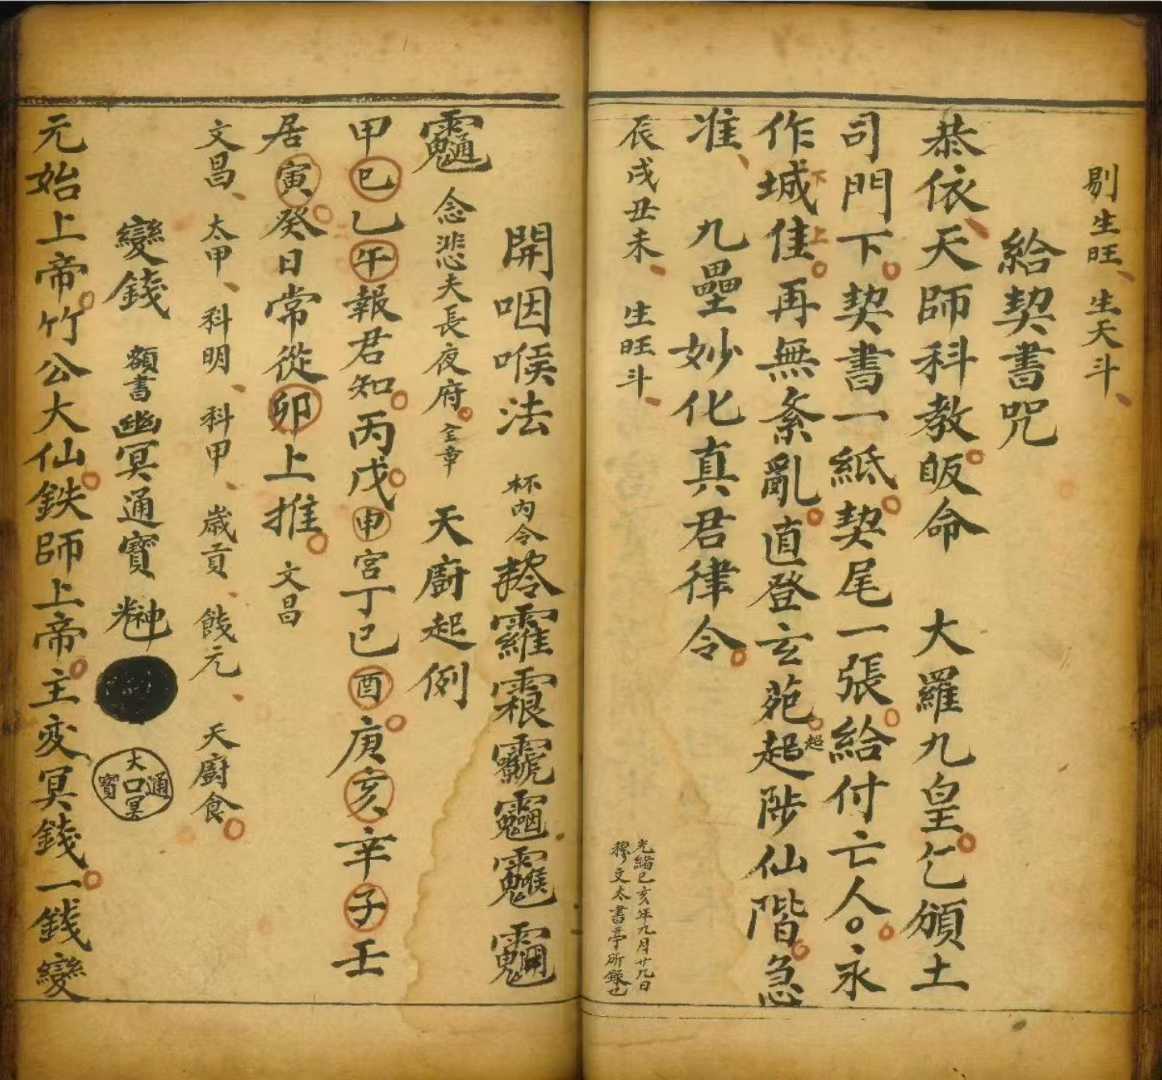 剔生旺、生天斗、
給契書咒
恭依天師科教皈命 大羅九皇乞頒土
司門下契書一紙契尾一張給付亡人永
作城佳再無紊亂直登玄苑起陟仙階急
下上
超
准、九壘妙化真君律令
辰戌丑未、生旺斗、
光緒己亥年九月廿九日
穆文太書亭所錄也
開咽喉法 杯內令
念悲夫長夜府 全章 天廚起例
甲巳乙午報君知丙戊申宮丁己酉庚亥辛子壬
居寅癸日常從卯上推 文昌
文昌、太甲、科明、科甲、歲貢、餞元、天廚食
變錢 額書幽冥通寶
大冥通寶
元始上帝竹公大仙鉄師上帝主变冥錢一錢變